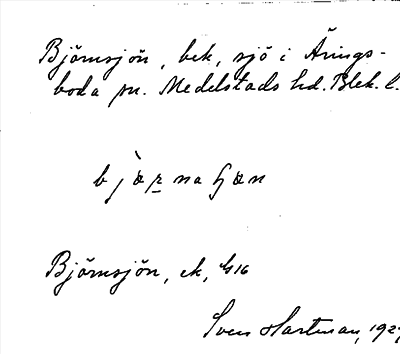 Björnsjön, bek, sjö i Ärings-
boda sn. Medelstads hd. Blek. l.
Björnsjön, ek,
Sven Hartman, 192